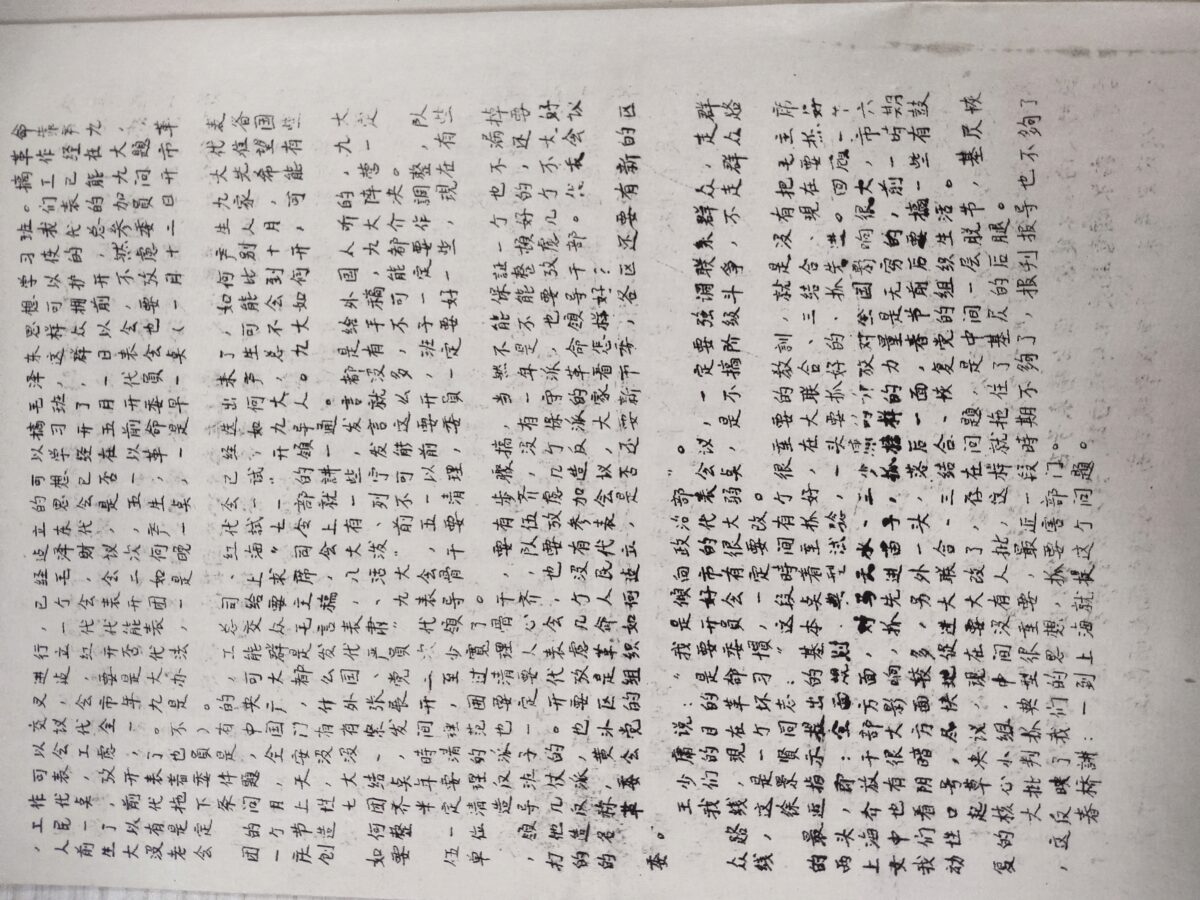 ，工作可以交叉进行，已经造立的可以搞毛泽东思想学习班。搞革命靠
人民代表会议，造立一个毛泽东思想学习班，这样可以使我们工作
前一奌，工代会，红代会，财代会已经开了，群众拥护的代表已经在
生了，攷虑全市要代表会议是否在五月一日以前开，总能九
大以前开，一年是否能开二次，五一以前开代表会，不然参加大，
没有代表了。九大代表团如何产生，革命委員会也要攷虑委員问題
老是拖着也不是办法，一是晚一奌，一是早一奌（一月十二日开市革
会定下委員）。
条件是有的，工总司、红代会已经选出来了，如何产生九大代表
团的问題，中央可能给上海试试，如何产生，可能比别人家先准各
一个月，全国广群众要求“七一”开九大，总不会到十月，希望国
庆节上天安门，都是毛主席司令部的领导人。九大如何开，可能有些
创造性，没有什么发言稿，会上就讲一通。
七大没有外国代表，八大有一些，发言都是给外国人听的，九大
如何团结、紧张、严肃、活泼、列宁发言就没有手稿，九大阵营一定
要整齐奌，发展党员“九大”前不可能这么多，不可能都介决。
半年時间开二次代表会，五一以前要开，班子一定要作調整，队
伍一定要清理，至少领导骨干要清理，委員一定要好一些，現在有些
单位清理的范囲过寬了。
造反派也要清理骨干，要有步骤搞，当然不能保証一个也不漏掉
，领导班子一定要人心齐，队伍齐，没有一年是不能整頓好的，还要
打他几仗的。开代表会，也要攷虑几个保守派，也要攷虑几个不大好
的造反派，也要攷虑几个没有参加造反派的革命领导干部。代表会议
的名称，黄浦区是革命人民代表会议，大家看怎样好？
革委会党的组织如何造立，是否还要新市委，各区还要有新的区
委。
王少庸说：“我是倾向政治部”。
我们的目的是要开好市的代表会议，一定要强调联系群众，走群
众路线，現在革命委員会有很大弱奌，是不搞阶級斗争，不走群众路
线，这是一个坏习慣，一定要改。
徐景贤同志：“这段時间有个很重要的教訓，就是没有把毛主席
的最近指示提出的基本奌着重抓好，在大联合、三结合、現在要抓好
两头，即：全面规划、典型试验，一头要抓好的、抓先进。回顾一下
上海介放干部方面，对马天水、王少庸的介放对全国影响很大，市六
女中也有很大影响，抓先进苗子，抓榜样的力量是无穷的，前一時期
我们看阴暗方面较多，另外一头，落后一面，春节前后要搞一些有鼓
动性口号，尽快地促进大联合、三结合、恢复党的组织生活。
起草决议，現在要大改了，存在问題，是中间一层脱节，基层恢
复的核心小组，中间没有人批，这样就拖住了基层的后腿。
大批判抓典型很重要，最近一段時期不够了，报刊报导也不夠了
，这反映了我们的思想，抓要害部门。
春桥講：一到上海就提这个问題。